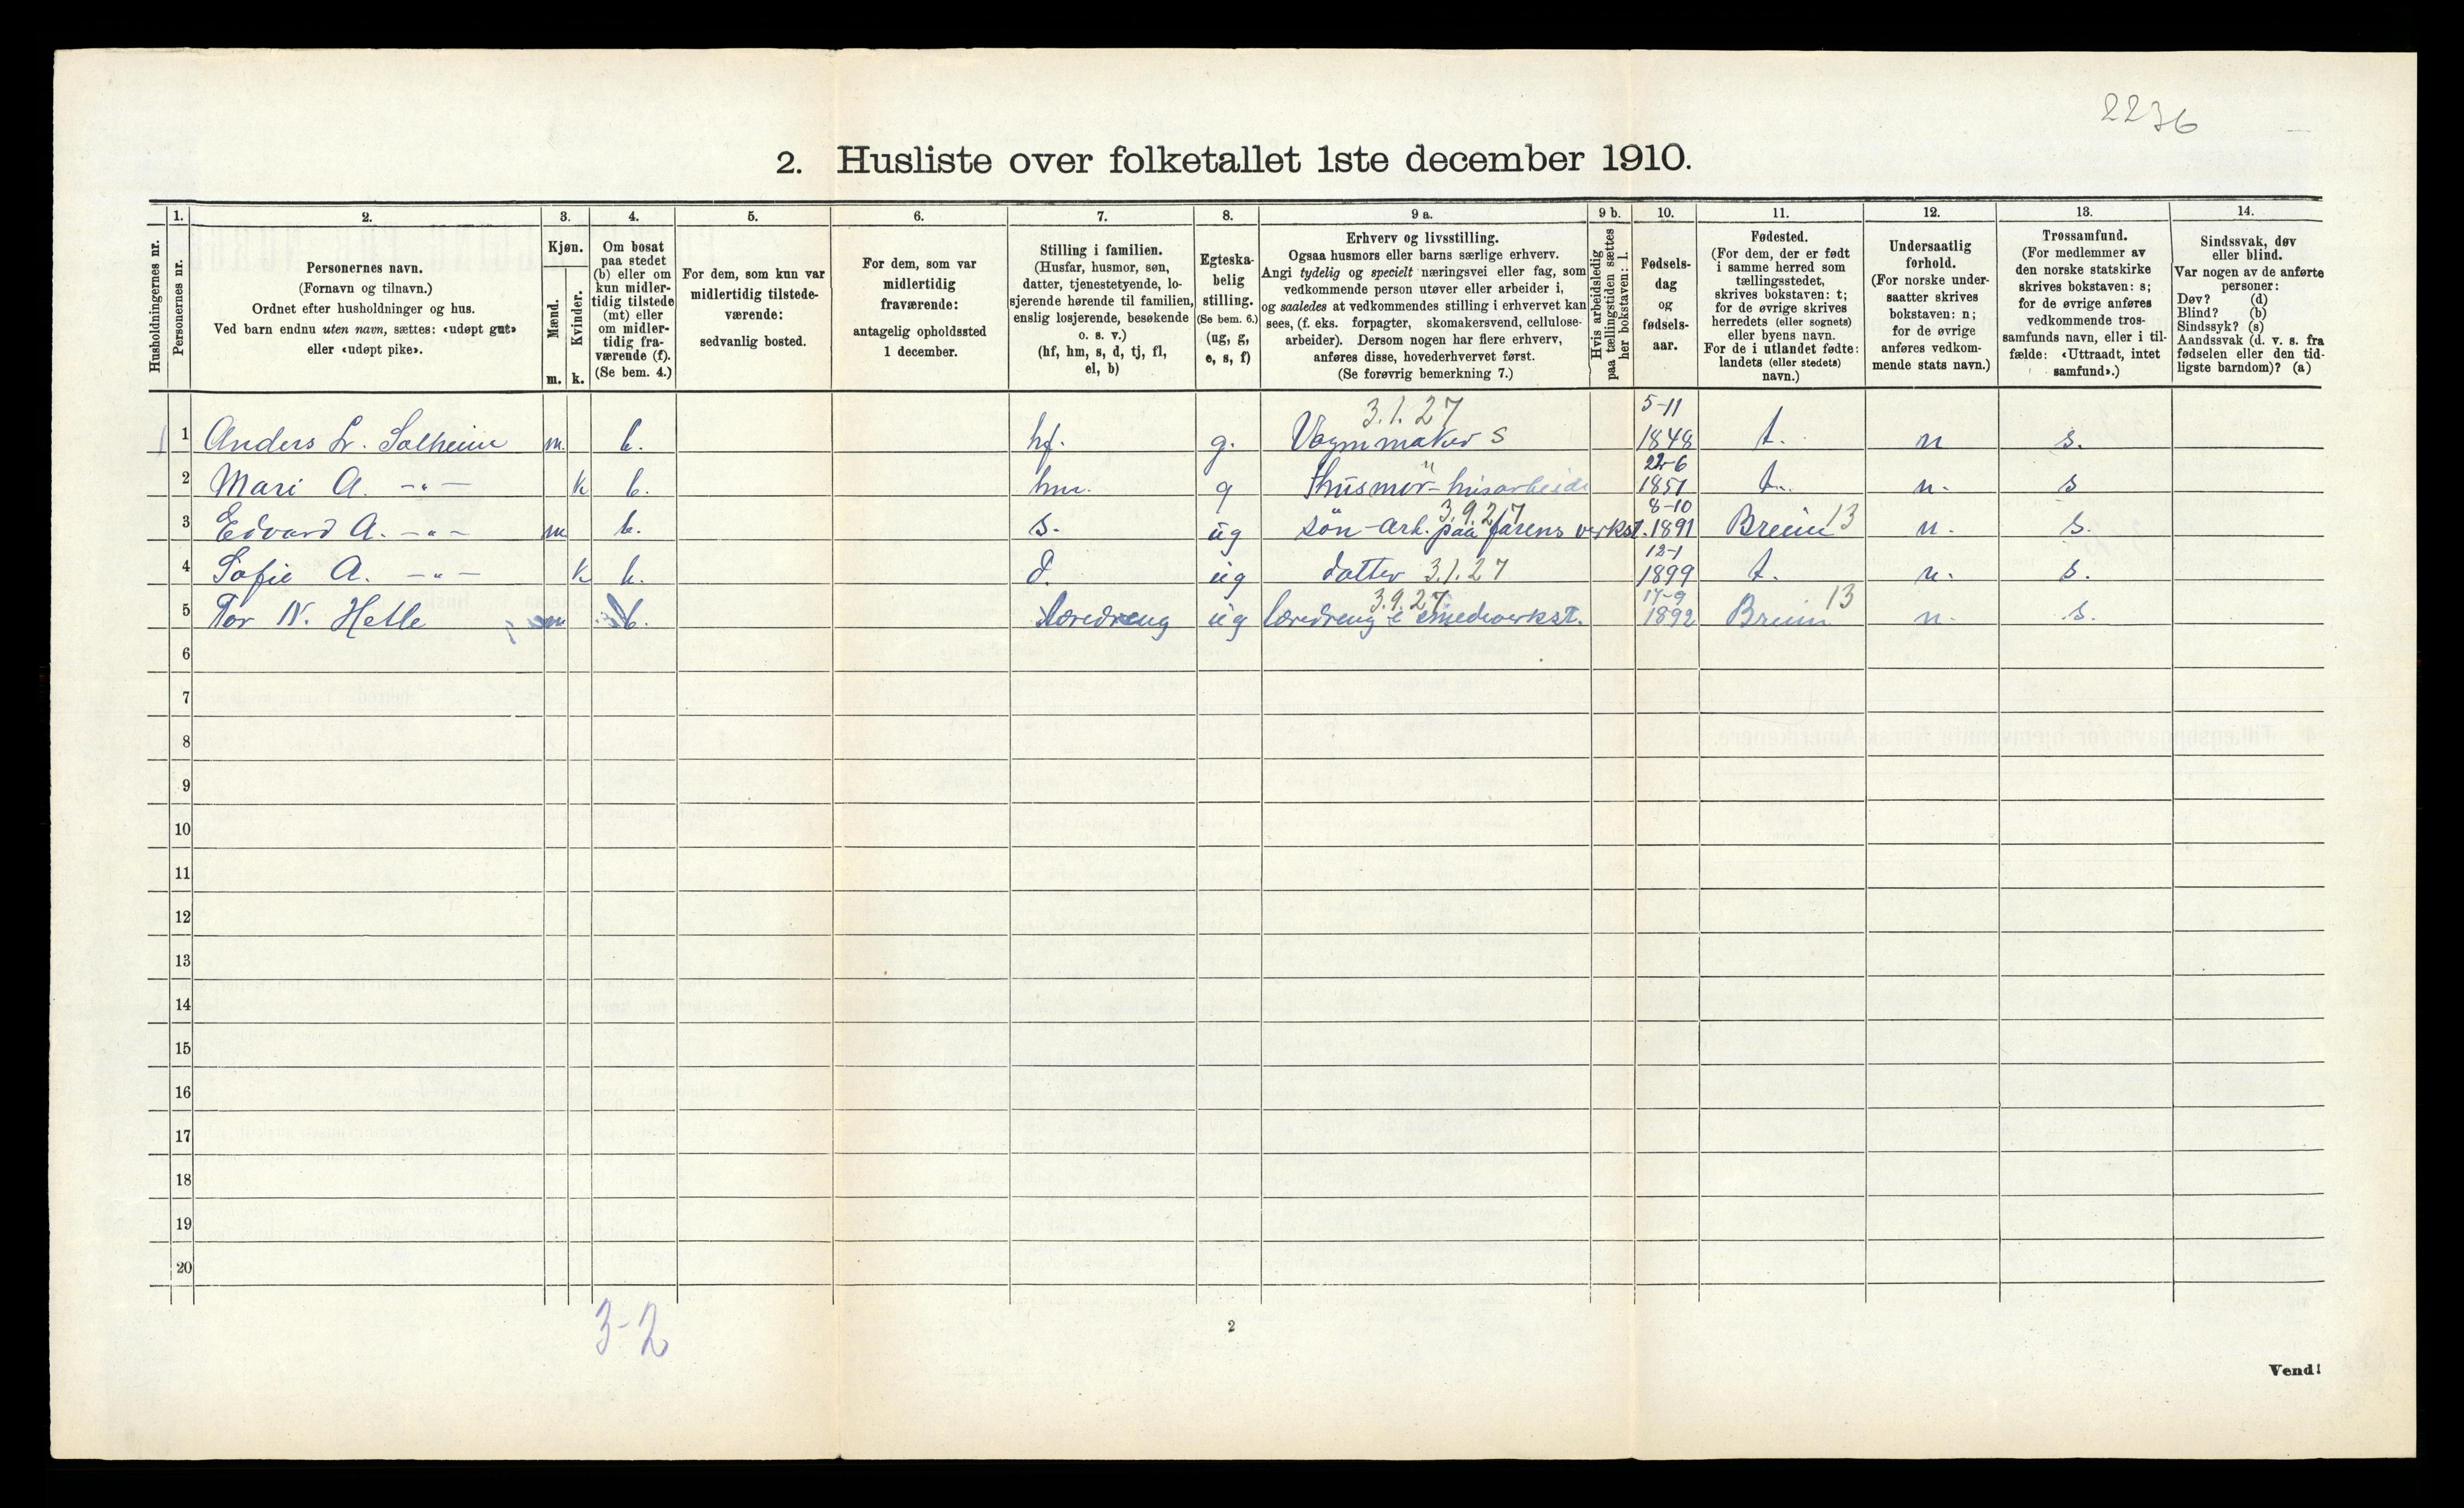 2236
2. Husliste over folketallet 1ste december 1910.
Husholdningernes nr.
1. Personernes nr.
2. Personernes navn.
(Fornavn og tilnavn.)
Ordnet efter husholdninger og hus.
Ved barn endnu uten navn, sættes: «udøpt gut»
eller «udøpt pike».
3. Kjøn.
Mænd. m.
Kvinder. k.
4. Om bosat
paa stedet
(b) eller om
kun midler-
tidig tilstede
(mt) eller
om midler-
tidig fra-
værende (f).
(Se bem. 4.)
5. For dem, som kun var
midlertidig tilstede-
værende:
sedvanlig bosted.
6. For dem, som var
midlertidig
fraværende:
antagelig opholdssted
1 december.
7. Stilling i familien.
(Husfar, husmor, søn,
datter, tjenestetyende, lo-
sjerende hørende til familien,
enslig losjerende, besøkende
o. s. v.)
(hf, hm, s, d, tj, fl,
el, b)
8. Egteska-
belig
stilling.
(Se bem. 6.)
(ug, g,
e, s, f)
9 a. Erhverv og livsstilling.
Ogsaa husmors eller barns særlige erhverv.
Angi tydelig og specielt næringsvei eller fag, som
vedkommende person utøver eller arbeider i,
og saaledes at vedkommendes stilling i erhvervet kan
sees, (f. eks. forpagter, skomakersvend, cellulose-
arbeider). Dersom nogen har flere erhverv,
anføres disse, hovederhvervet først.
(Se forøvrig bemerkning 7.)
9 b. Hvis arbeidsledig
paa tællingstiden sættes
her bokstaven: l.
10. Fødsels-
dag
og
fødsels-
aar.
11. Fødested.
(For dem, der er født
i samme herred som
tællingsstedet,
skrives bokstaven: t;
for de øvrige skrives
herredets (eller sognets)
eller byens navn.
For de i utlandet fødte:
landets (eller stedets)
navn.)
12. Undersaatlig
forhold.
(For norske under-
saatter skrives
bokstaven: n;
for de øvrige
anføres vedkom-
mende stats navn.)
13. Trossamfund.
(For medlemmer av
den norske statskirke
skrives bokstaven: s;
for de øvrige anføres
vedkommende tros-
samfunds navn, eller i til-
fælde: «Uttraadt, intet
samfund».)
14. Sindssvak, døv
eller blind.
Var nogen av de anførte
personer:
Døv? (d)
Blind? (b)
Sindssyk? (s)
Aandssvak (d. v. s. fra
fødselen eller den tid-
ligste barndom)? (a)
3.1.27 5-11
1 Anders L. Solheim m. b. hf. g. Vognmaker s 1848 t. n s.
22-6
2 Mari A. -"- k b. hm. g Husmor - husarbeide 1851 t. n. s
3.9.27 8-10
3 Edvard A. -"- m b. s. ug søn - arb. paa farens verkst. 1891 Breim 13 n. s.
12-1
4 Sofie A. -"- k b. d. ug datter 3.1.27 1899 t. n. s.
3.9.27 17-9
5 Tor N. Hetle m b. læredreng ug læredreng i smedverkst. 1892 Breim 13 n. s.
6
7
8
9
10
11
12
13
14
15
16
17
18
19
20
3-2
2
Vend!